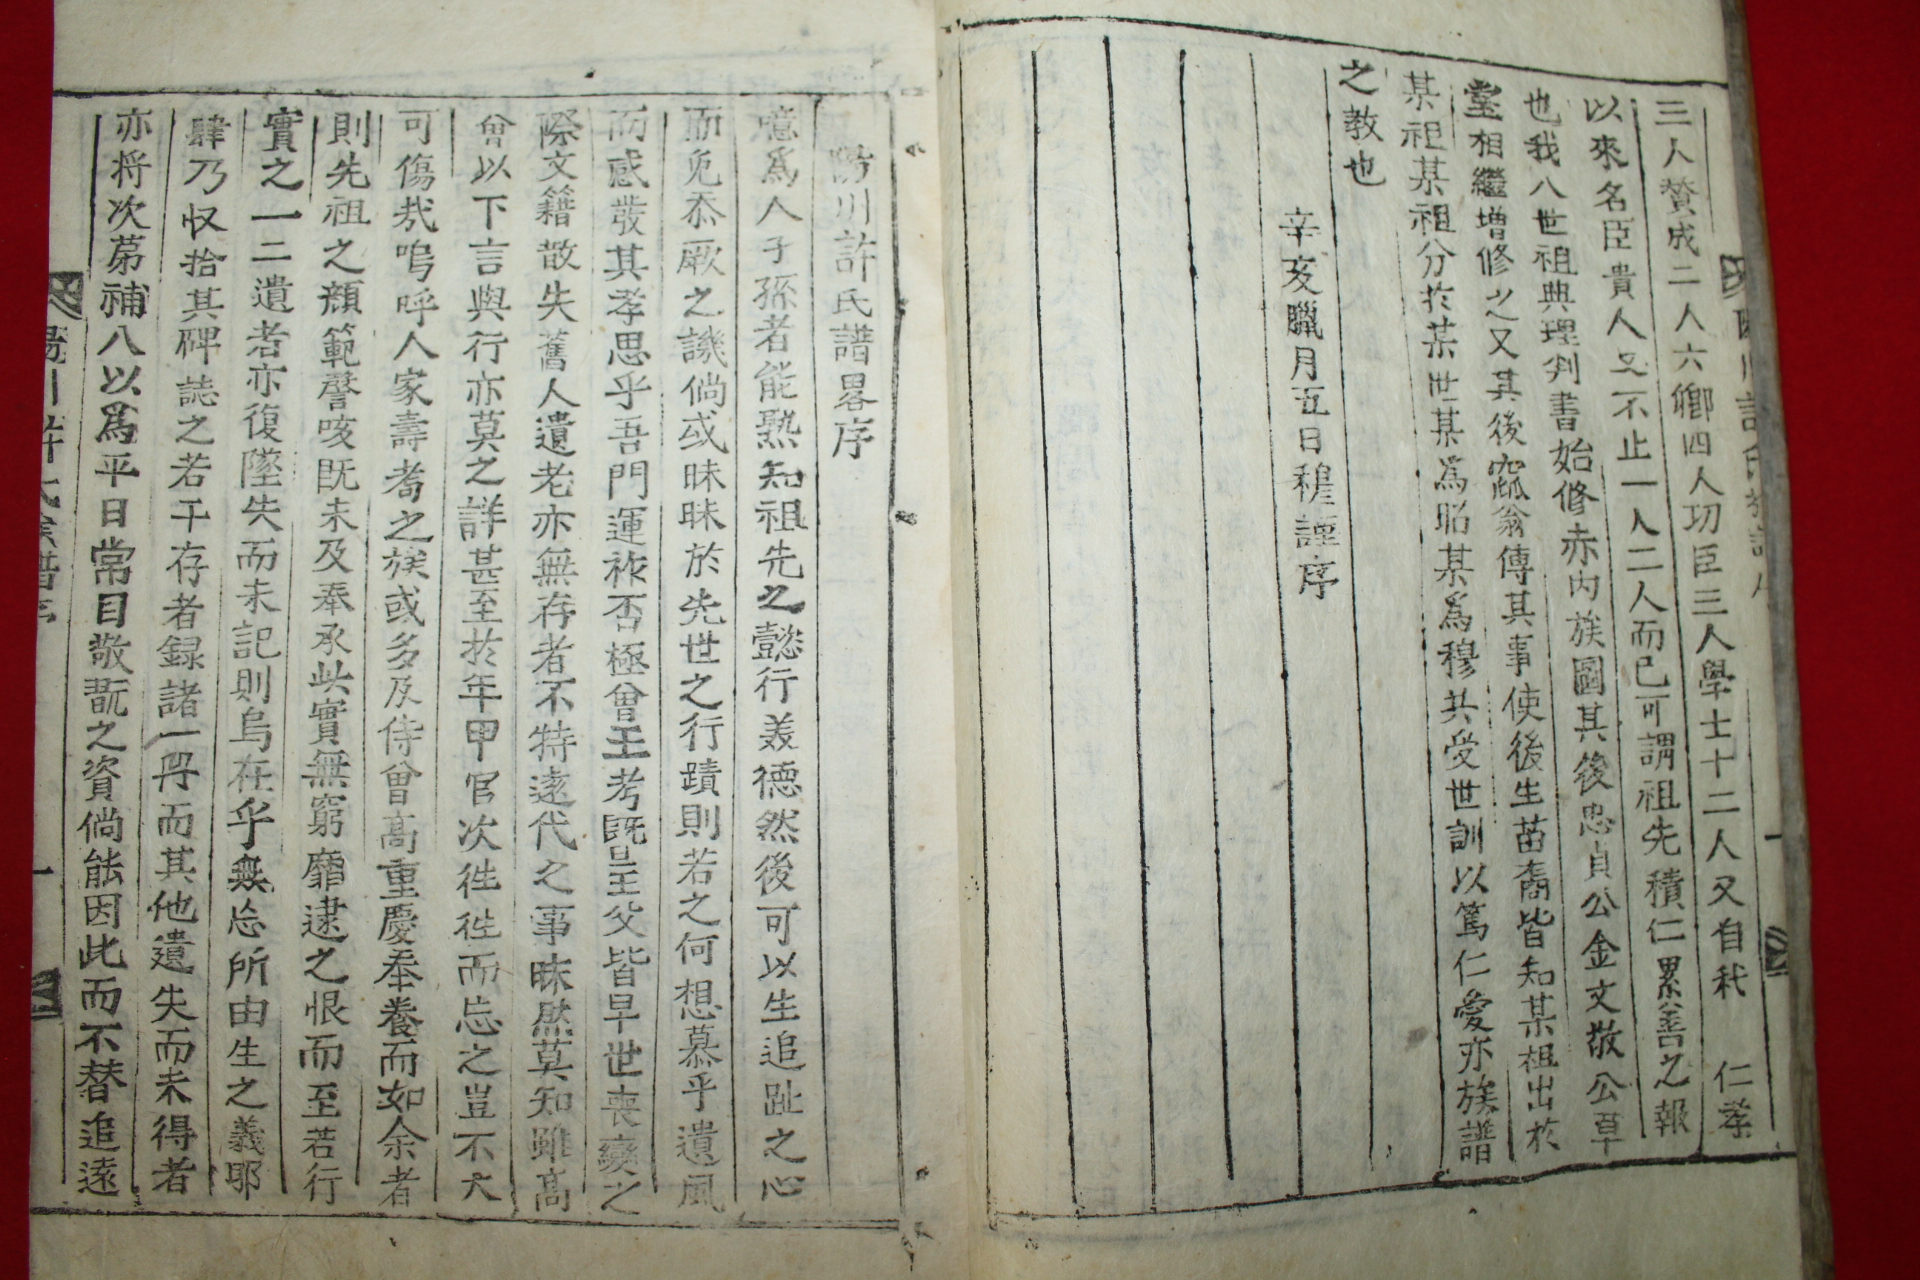 三人贊成二人六卿四人功臣三人學士十二人又自我 仁孝
以來名臣貴人又不止一人二人而已可謂祖先積仁累善之報
也我八世祖典理判書始修赤內族圖其後忠貞公金文敬公草
堂相繼增修之又其後窳翁傳其事使後生苗裔皆知某祖出於
某祖某祖分於某世某爲昭某爲穆共受世訓以篤仁愛亦族譜
之教也
辛亥臘月五日穆謹序
陽川許氏譜畧序
噫爲人子孫者能熟知祖先之懿行美德然後可以生追趾之心
而免忝厥之譏倘或昧昧於先世之行蹟則若之何想慕乎遺風
而感發其孝思乎吾門運祚否極曾王考旣王父皆早世喪變之
際文籍散失舊人遺老亦無存者不特遠代之事昧然莫知雖高
曾以下言與行亦莫之詳甚至於年甲官次往往而忘之豈不大
可傷哉嗚呼人家壽耈之族或多及侍曾高重慶奉養而如余者
則先祖之顔範謦咳旣未及奉承此實無窮靡逮之恨而至若行
實之一二遺者亦復墜失而未記則烏在乎無忘所由生之義耶
肆乃収拾其碑誌之若干存者録諸一冊而其他遺失而未得者
亦将次苐補入以爲平日常目敬翫之資倘能因此而不替追遠
陽川許氏族譜序
一